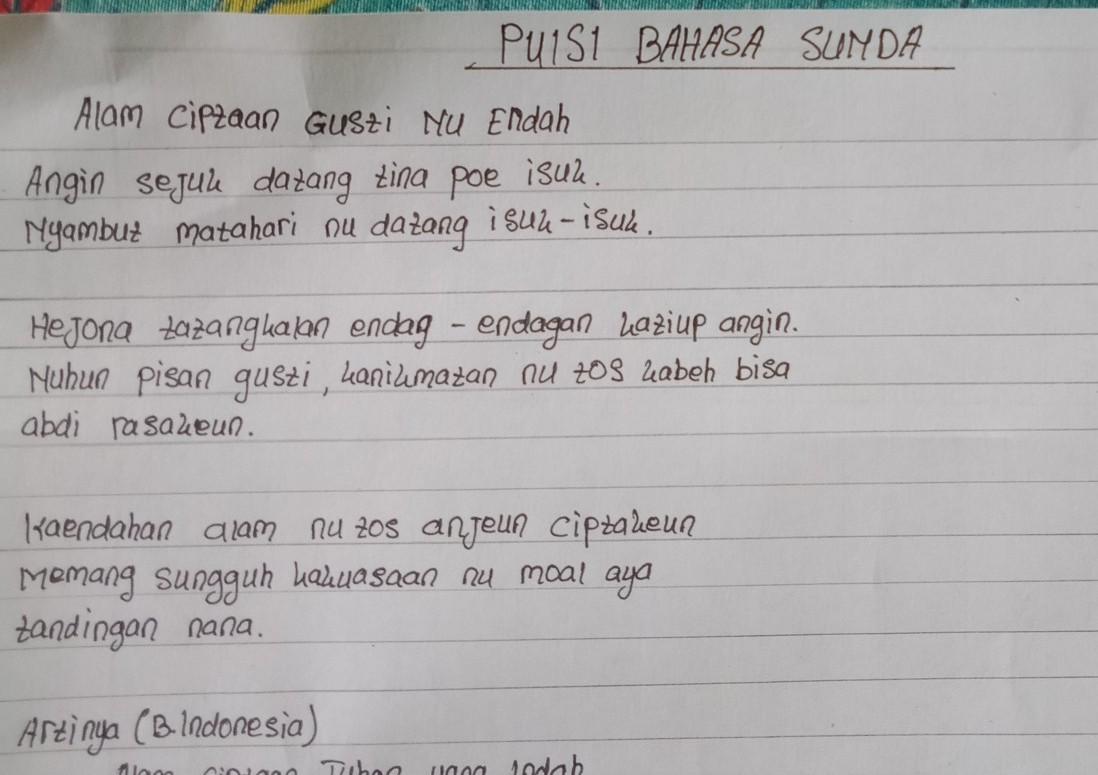 PUISI BAHASA SUNDA
Alam Ciptaan Gusti Nu Endah
Angin sejuk datang tina poe isuk.
Nyambut matahari nu datang isuk-isuk.
Hejona tatangkalan endag - endagan katiup angin.
Nuhun pisan gusti, kanikmatan nu tos kabeh bisa
abdi rasakeun.
Kaendahan alam nu tos anjeun ciptakeun
Memang sungguh kakuasaan nu moal aya
tandingan nana.
Artinya (B.Indonesia)
Alam ciptaan Tuhan yang Indah